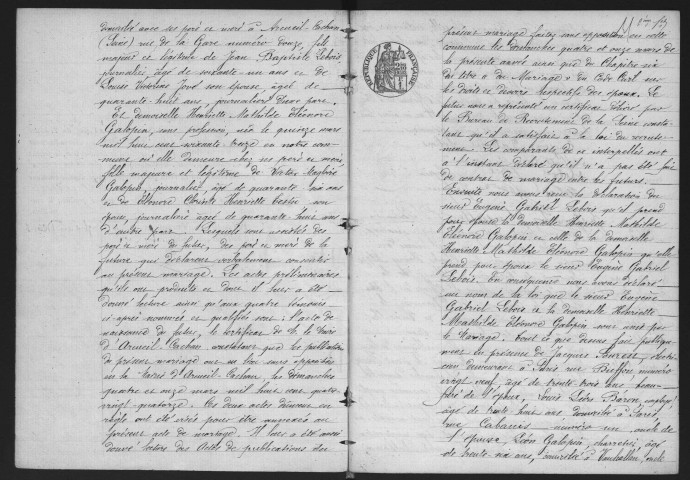 domicilié avec ses père et mère à Arcueil-Cachan
(Seine) rue de la Gare numéro douze, fils
majeur et légitime de Jean Baptiste Lebois
journalier, âgé de soixante un ans et de
Louise son épouse, âgée de
quarante huit ans, journalière d'une part.
Et demoiselle Henriette Mathilde Eléonore
Galopin, sans profession, née le quinze mars
mil huit cent soixante treize en notre com-
mune où elle demeure chez ses père et mère,
fille majeure et légitime de
Galopin, journalier, âgé de quarante ans
et de Eléonore Henriette son
épouse, journalière âgée de quarante huit ans
d'autre part. Lesquels sont assistés des
père et mère du futur, des père et mère de la
future qui déclarent verbalement consentir
au présent mariage. Les actes préliminaires
qu'ils ont produits et dont il leur a été
donné lecture ainsi qu'aux quatre témoins
ci-après nommés et qualifiés sont : l'acte de
naissance du futur, le certificat de M. le Maire
d'Arcueil-Cachan constatant que les publications
du présent mariage ont eu lieu sans opposition
en la Mairie d'Arcueil-Cachan, les dimanches
quatre et onze mars mil huit cent quatre
vingt-quatorze. Ces deux actes dûment en
règle ont été visés pour être annexés au
présent acte de mariage. Il leur a été aussi
donné lecture des actes de publications du
présent mariage faites sans opposition en cette
commune les dimanches quatre et onze mars de
la présente année ainsi que du Chapitre six
du titre "du Mariage" du Code Civil sur
les droits et devoirs respectifs des époux. Le
futur nous a représenté un certificat délivré par
le Bureau de Recrutement de la Seine consta-
tant qu'il a satisfait à la loi du recrute-
ment. Les comparants de ce interpellés ont
à l'instant déclaré qu'il n'a pas été fait
de contrat de mariage entre les futurs.
Ensuite nous avons reçu la déclaration du
sieur Eugène Gabriel Lebois qu'il prend
pour épouse la demoiselle Henriette Mathilde
Eléonore Galopin et celle de la demoiselle
Henriette Mathilde Eléonore Galopin qu'elle
prend pour époux le sieur Eugène Gabriel
Lebois. En conséquence nous avons déclaré
au nom de la loi que le sieur Eugène
Gabriel Lebois et la demoiselle Henriette
Mathilde Eléonore Galopin sont unis par
le Mariage. Tout ce que dessus fait publique-
ment en présence de Jacques
demeurant à Paris rue Buffon, numéro
vingt neuf, âgé de trente trois ans beau-
frère de l'époux, Louis Baron, employé
âgé de trente huit ans domicilié à Paris,
rue Cabanis numéro un oncle de
l'épouse, Léon Galopin, charretier, âgé
de trente six ans, domicilié à oncle
RÉPUBLIQUE FRANÇAISE